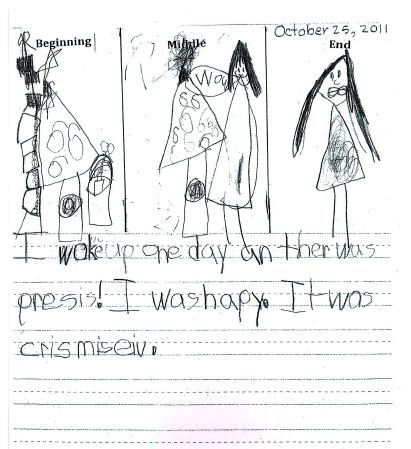 October 25, 2011
Beginning Middle End
Wow
I wokeup one day an ther was
presis! I washapy. It was
crismiseiv.